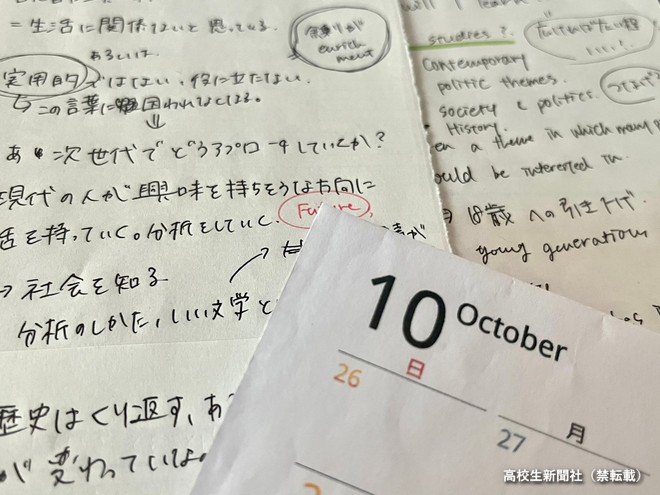 = 生活に関係ないと思っている.
あるいは
実用的ではない、役に立たない.
↳この言葉に囚われなくなる。
⇓
次世代でどうアプローチしていくか?
現代の人が興味を持ちそうな方向に
を持っていく。分析をしていく.
Future,
→ 社会を知る
分析のしかた,いい文学と
歴史はくり返す、あ
が変わっていな
enrich
ment
will I learn
studies?
contemporary
politic themes.
society & politics.
History.
a theme in which many
would be interested in.
つなげる
いい!
→ 18歳への引き下げ.
young generations
10 October
日
26
月
27
高校生新聞社（禁転載）